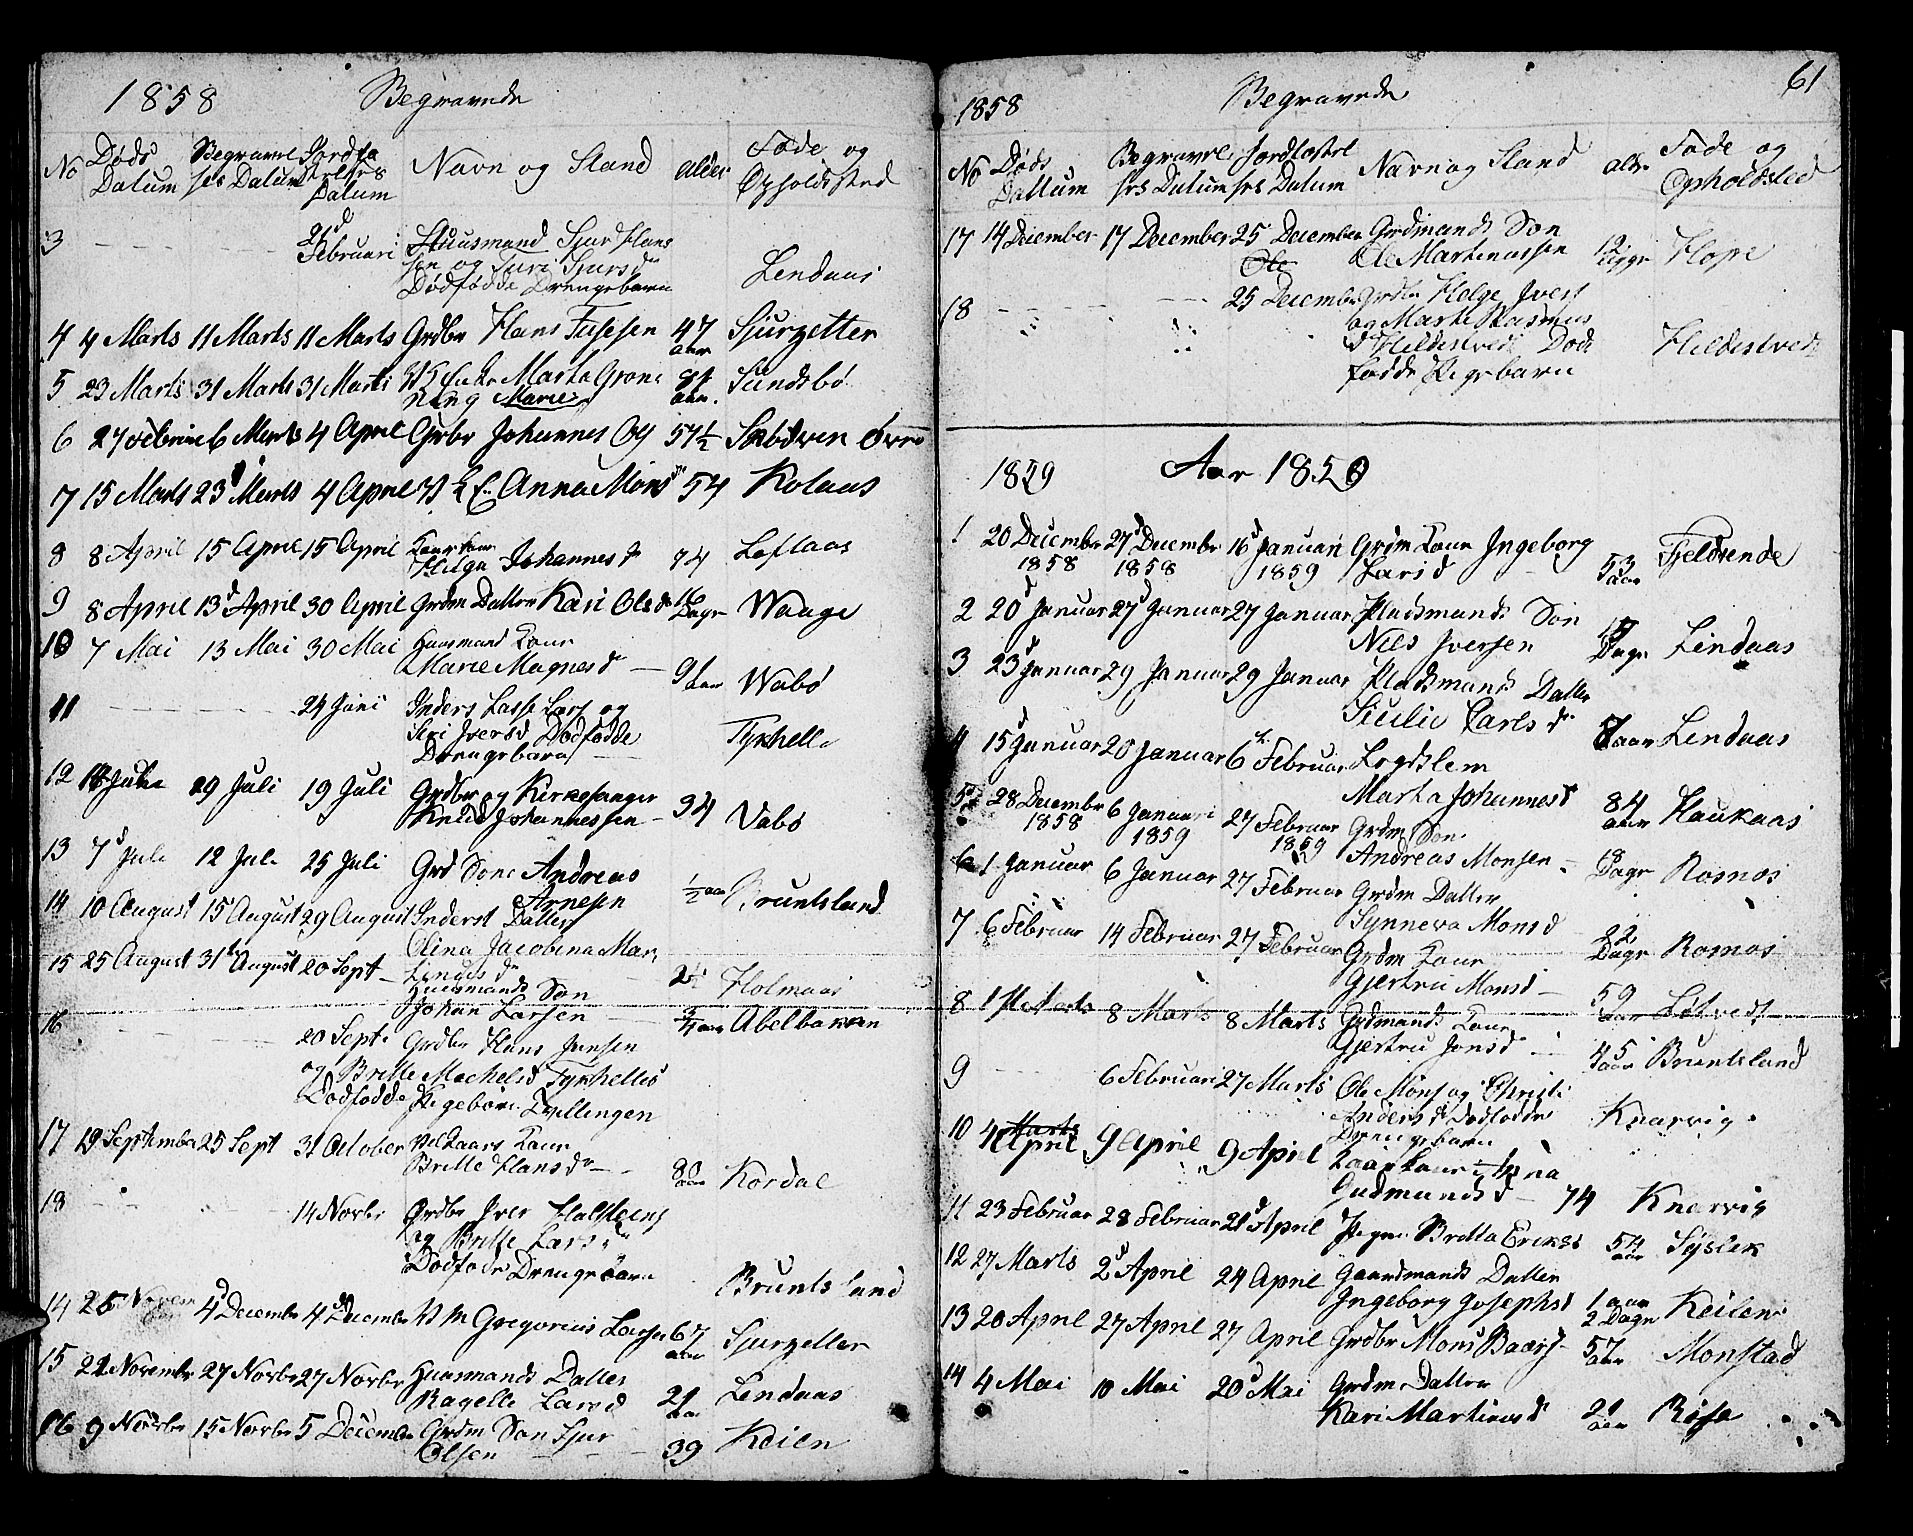 1858 Begravede
No Døds Datum Begravelses Datum Jordfæstelses Datum Navn og Stand Alder Føde og Opholdssted
3 21d Februari Huusmand Sjur Hans
sen og Turi Sjursdr
Dødfødde Drengebarn Lendaas
4 4 Marts 11 Marts 11 Marts Grdbr Hans Tufsen 47 aar Sjurzetter
5 23 Marts 31 Marts 31 Marts Enke Marta Grone
ning Marie 84 aar. Sundsbø
6 27 Februar 6 Marts 4 April Grbr Johannes 57½ Øvre
7 15 Marts 23d Marts 4 April Anna Monsdr 54 Kolaas
8 8 April 15 April 15 April Kaarkone
Helga Johannesdr 74 Loflaas
9 8 April 13d April 30 April Grdm Datter Kari Olsdr 16 Dagr Waage
10 7 Mai 13 Mai 30 Mai Huusmand Kone
Marie Magnesdr 91 aar Wabø
11 24 Juni Inders Lasse Lars og
Siri Iversd Dødfødde
Drengebarn Tyshelle
12 Juli 19 Juli 19 Juli Grdbr og Kirkesanger
Knud Johannessen 34 Vabø
13 7d Juli 12 Juli 25 Juli Grd Søne Andreas
Arnesen ½ aar Bruntsland
14 10 August 15 August 29 August Inderst Datter
Olina Jacobina Mar
tinusdr 2½ Holmaas
15 25 August 31 August 20 Sept Huusmands Søn
Johan Larsen ¾ aar Abelbakken
16 20 Sept. Grdbr Hans Jensen
og Britte Machelsd Tyshelles
Dødfødde Pigebarn Tvillingen
17 19 September 25 Sept 31 October Kaars Kone
Britte Hansdr 80 aar Kordal
18 14 Novbr Grdbr Iver Halsteens
og Britte Larsdr
Dødfødde Drengebarn Bruntsland
14 26 Novem 4d December 4d December Gregorius Larsen 67 aar Sjurzetter
15 22 November 27 Novbr 27 Novbr Huusmands Datter
Ragelle Larsd 29 aar Lendaas
16 9 Novbr 15 Novbr 5 December Grdm Søn Sjur
Olsen 39 Keien
61
1858 Begravede
No Døds Dattum Begravelses Datum Jordfæstelses Datum Navn og Stand Alder Føde og Opholdsted
17 14 December 17 December 25 December Grdmands Søn
Ole Martinussen 12 Dagr Hope
18 25 December Grdbr Helge Ivers
og Marte Rasmus
d Hildestvedt Død
fødde Pigebarn Hildestvedt
1859 Aar 1859
1 20 December 1858 27d December 1858 16d Januari 1859 Grdm Kone Ingeborg
Larsd 53 aar Fjeldsende
2 20d Januar 27d Januar 27 Januar Pladsmands Søn
Nils Iversen Dagr Lindaas
3 23d Januar 29 Januar 29 Januar Pladsmands Datter
Sicilie Carlsdr 7 aar Lendaas
4 15d Januar 20 Januar 6 Februar Legdslem
Marta Johannesd 84 aar Haukaas
5 28 December 1858 6 Januari 1859 27 Februar 1859 Grdm Søn
Andreas Monsen 18 Dagr Rosnos
6 1 Januar 6 Januar 27 Februar Grdm Datter
Synneva Monsd 22 Dagr Rosnos
7 6 Februar 14 Februar 27 Februar Grdm Kone
Gjertru Monsd 59 aar Løtvedt
8 1ste Marts 8 Marts 8 Marts Grdmands Kone
Gjertru Jonsd 45 aar Bruntsland
9 6 Februari 27 Marts Ole Mons og Christi
Andersd Dødfødde
Drengebarn Knarvig
10 4 April 9 April 9 April Kaarkone Anna
Gudmundsd 74 Knarvig
11 23 Februar 28 Februar 21d April Pigen Britta Eriksd 54 aar Syslek
12 27 Marts 2d April 24 April Gaardmands Datter
Ingeborg Josephsd 1 aar 2 Dagr Keilen
13 20 April 27 April 27 April Grdbr Mons Baars 57 aar Monstad
14 4 Mai 10 Mai 20d Mai Grdm Datter
Kari Martinusd 21 aar Risa